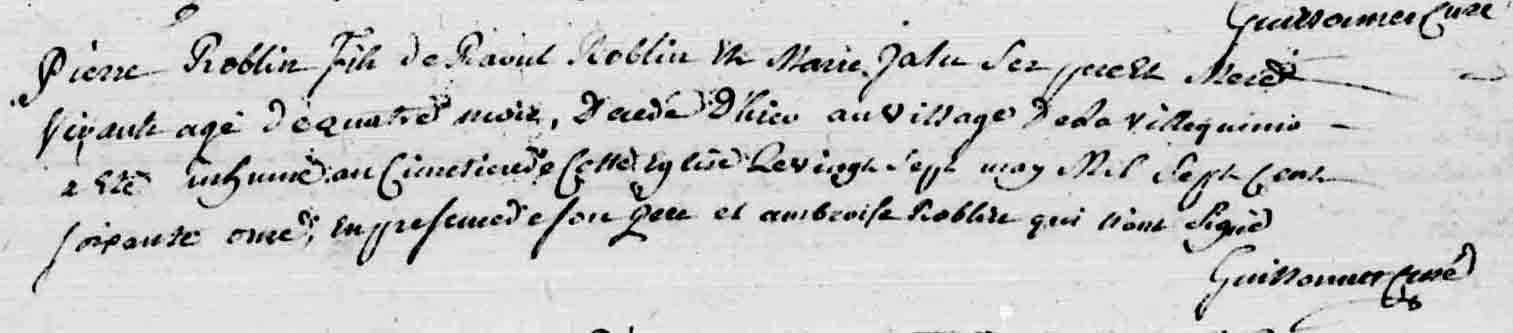 Guillonner Curé
Pierre Roblin Fils de Raoul Roblin et Marie Jalu Ses pere et Mere
Vivants agé de quatre mois, Decedé D'hier au village De la Villequinio
a Eté inhumé au Cimetiere de Cette Eglise Le vingt Sept may Mil Sept Cent
soixante onze, En presence de son Pere et ambroise Roblin qui n'ont Signé
Guillonner Curé